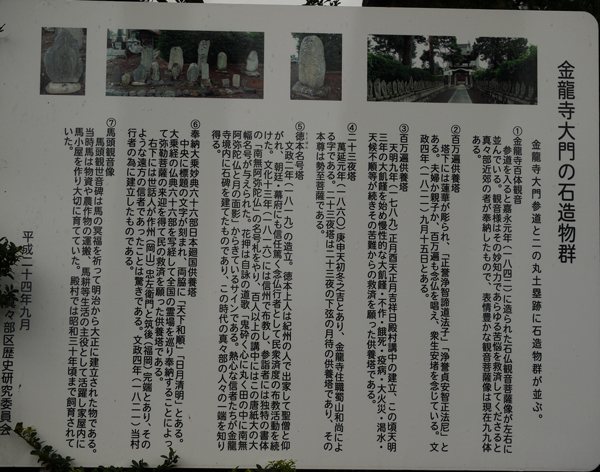 金龍寺大門の石造物群
金龍寺大門参道と二の丸土塁跡に石造物群が並ぶ。
①金龍寺百本観音
参道を入ると嘉永元年(一八四二)に造られた石仏観音菩薩像が左右に
並んでいる。観音様はその妙知力であらゆる苦悩を救済してくださると
真々部近郊の者が奉納したもので、表情豊かな観音菩薩像は現在九九体
ある。
②百万遍供養塔
塔下には蓮華が彫られ、「上誉浄智諦道法子」「浄誉貞安智正法尼」と
ある。夫婦か親子か、百万遍も念仏を唱え、衆生安堵を念じている。文
政四年(一八二一)九月十五日とある。
③百万遍供養塔
天明九年(一七八九)正月酉天正月吉祥日殿村講中の建立、この頃天明
三年の大飢饉を始め慢性的な大飢饉・不作・餓死・疫病・大火災・渇水・
天候不順等が続きその苦難からの救済を願った供養塔である。
④二十三夜塔
萬延元年(一八六〇)庚申天初冬之吉とあり、金龍寺住職蜀山和尚によ
る字である。二十三夜塔は二十三夜の下弦の月待の供養塔であり、その
本尊は勢至菩薩である。
⑤徳本名号塔
文政二年(一八一九)の造立。徳本上人は紀州の人で出家して聖僧と仰
がれ、朝廷・幕府にも信任篤く念仏行者として民衆済度の布教活動を続
けた。文化十三年(一八一六)には信州で布教し、参詣者には独特の書体
の「南無阿弥陀仏」の名号札をやり、百人以上の講中にはこの唐紙大の大
幅名号が与えられた。花押は自詠の道歌「鬼砕く心に丸く田の中に南無
阿弥陀仏と月の面影」からきているサインである。熱心な信者たちが金龍
寺境内に石碑を建てたものであり、この時代の真々部の人々の一端を知り
得る。
⑥奉納大乗妙典六十六部日本廻国供養塔
中央に標題の文字が刻まれ、両脇に「天下和順」「日月清明」とある。
大乗経の仏典六十六部を写経して全国の霊場を巡り奉納することによっ
て弥勒菩薩の来迎を得て民の救済を願った供養塔である。
右下には世話人が作州(岡山)忠左衛門と筑後(福岡)完端とあり、その
ような遠方の信者であったことは驚きである。文政四年(一八二一)当村
行者の為に建立したものである。
⑦馬頭観音像
馬頭観世音碑は馬の冥福を祈って明治から大正に建立された物である。
当時馬は物資や農作物の運搬、馬耕等生活の主役として活躍し家屋内に
馬小屋を作り大切に育てていた。殿村では昭和三十年頃まで飼育されて
いた。
平成二十四年九月
々部区歴史研究委員会